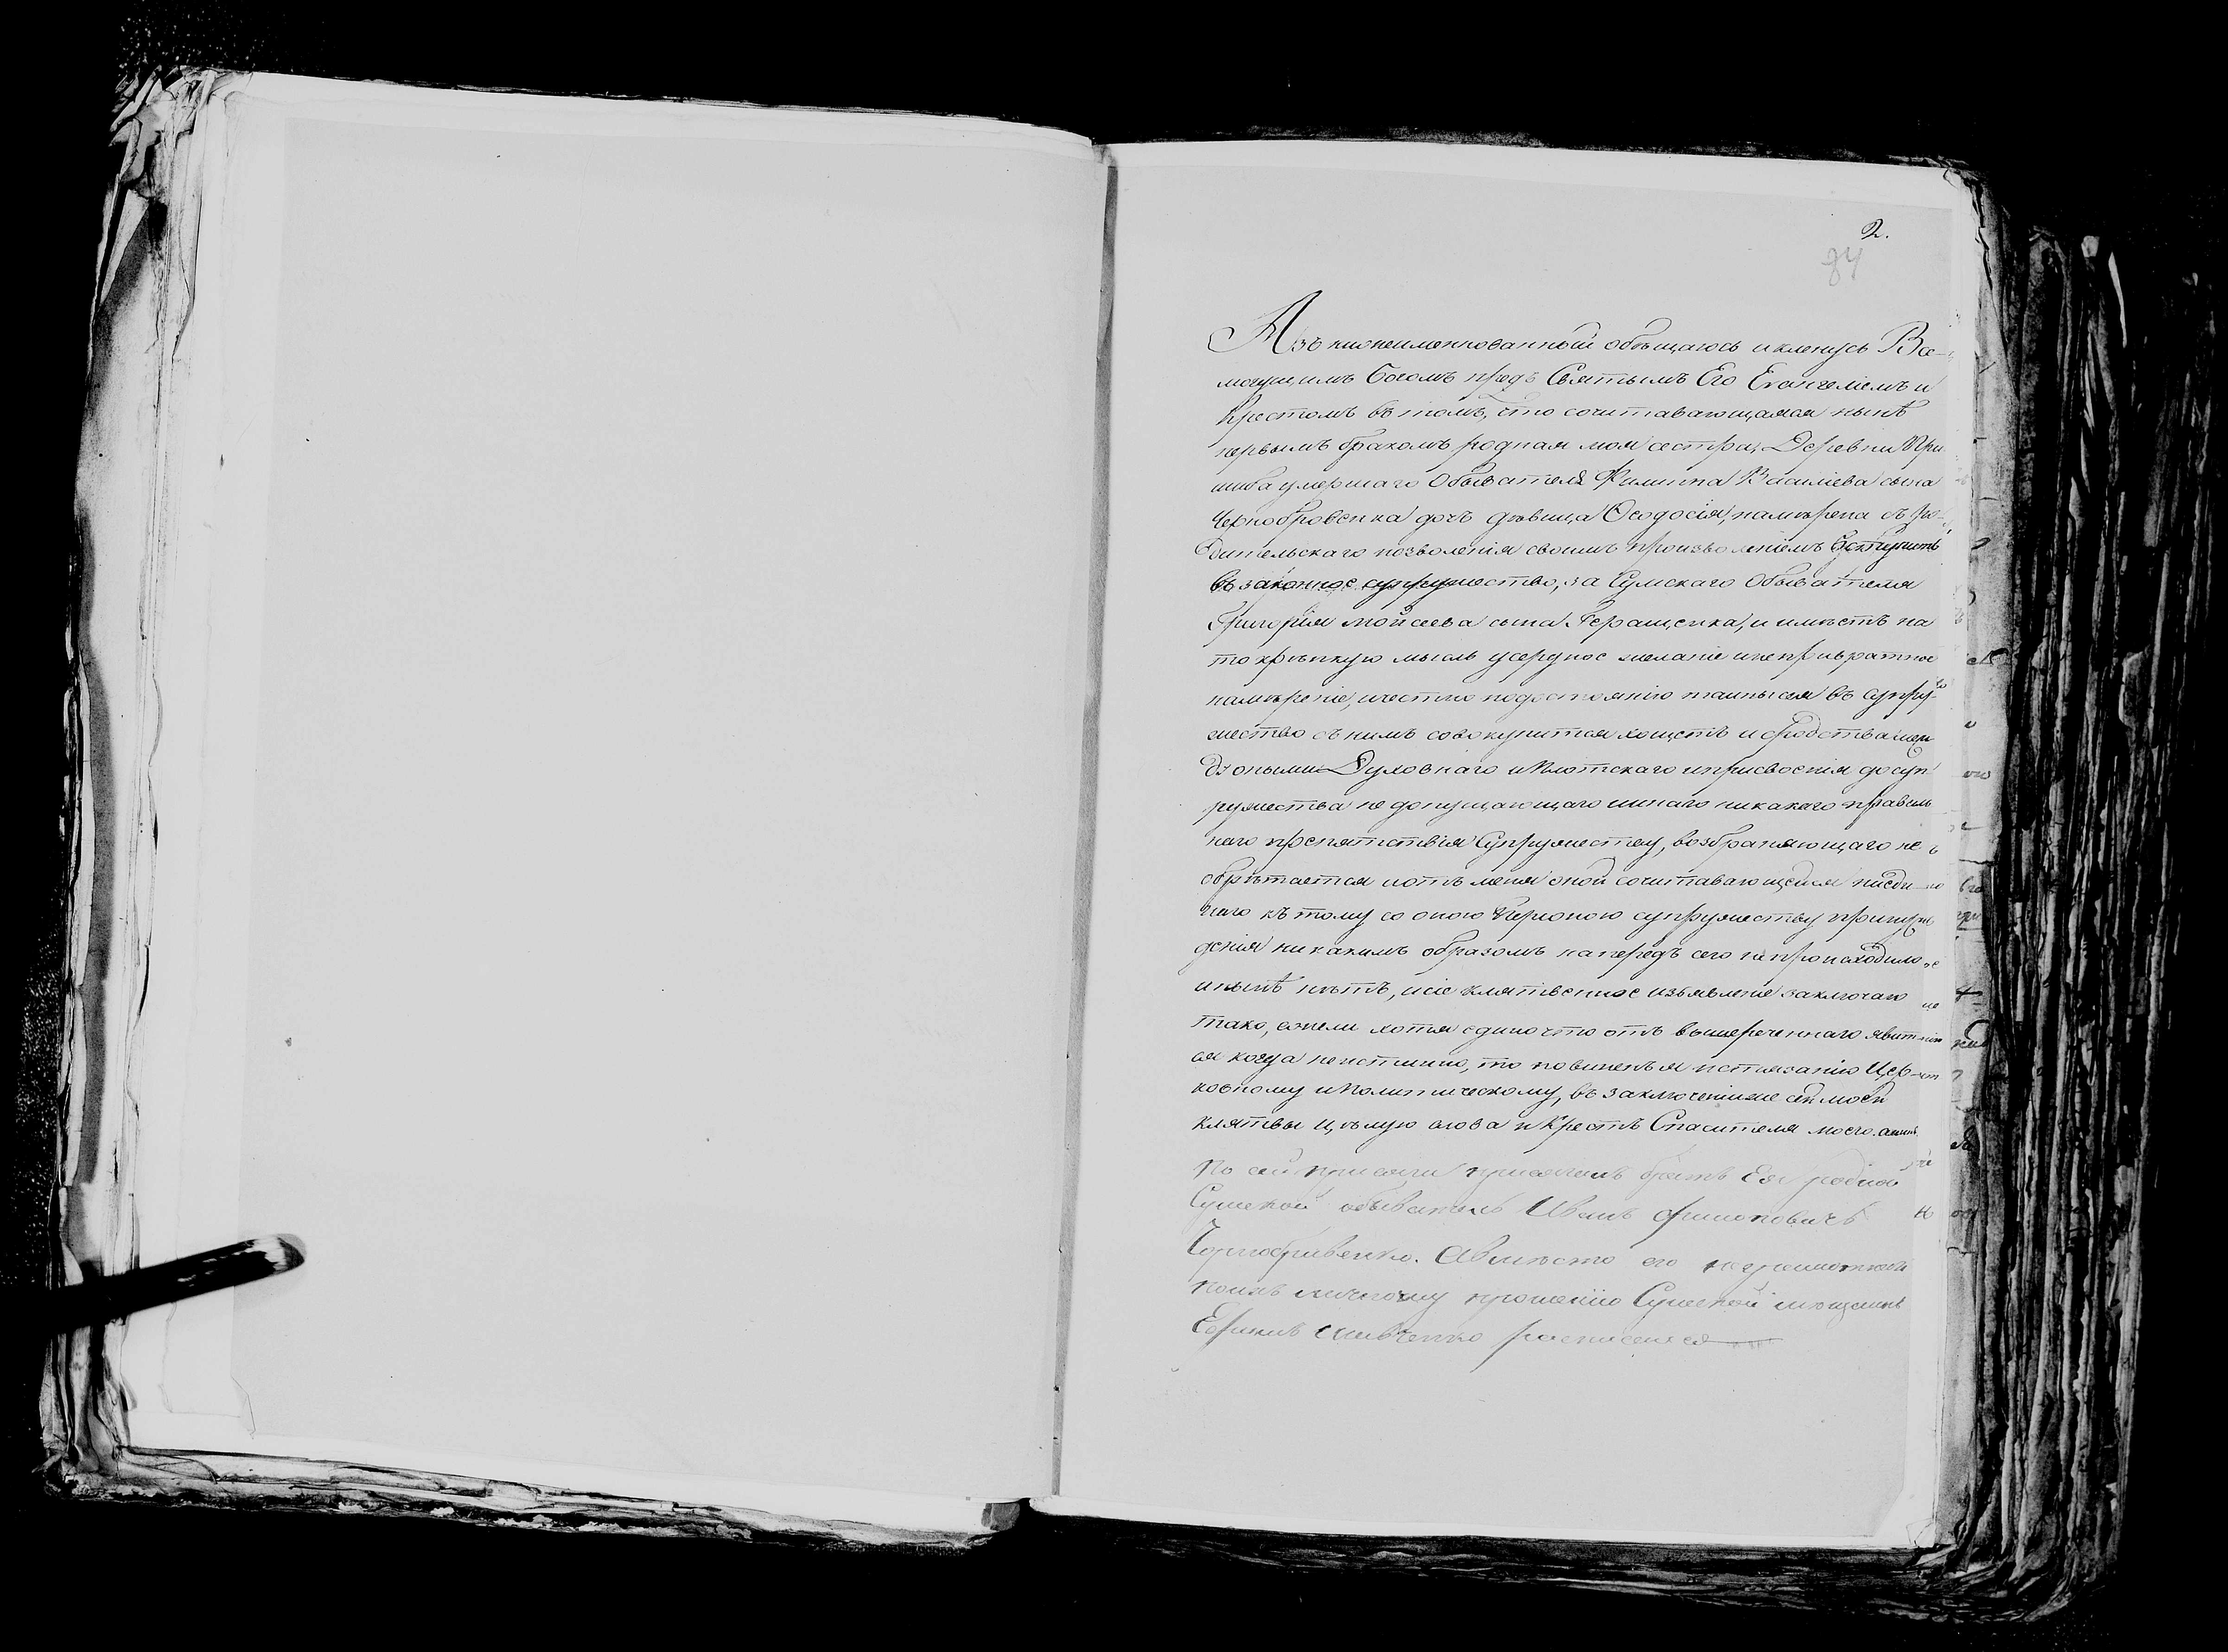 2.
84
Азъ нижеименнованный обѣщаюсь и кленусь Все-
могущимъ Богомъ предъ Святымъ Его Евангелiемъ и
Крестомъ въ томъ, что сочитавающаяся нынѣ
первымъ бракомъ родная моя сестра, Деревни При
шиба умершаго Обывателя Филиппа Васильева сына
Чернобровенка дочь дѣвица Ѳеодосiя, намѣрена съ ро-
дительскаго позволенiя своимъ произволенiемъ вступить
въ законное супружество, за Сумскаго Обывателя
Григорiя Мойсеева сына Геращенка, и имѣетъ на
то крѣпкую мысль усердное желанiе и непревратное
намѣренiе, и честно по достоянiю таиныся въ супру-
жество съ нимъ совокупится хощетъ и сродства меж
дэ оными Духовнаго и Плотскаго и присвоенiя до суп
ружества не допущающаго и инаго никакаго правиль
наго препятствiя Супружеству, возбраняющаго не
обрѣтается и отъ меня оной сочитавающейся ниеди-
наго къ тому со оною Персоною супружеству принуж
денiя никакимъ образомъ напередъ сего не происходило
и нынѣ нѣтъ, и сiе клятвенное изъявленiе заключаю
тако, ежели хотя едино что отъ вышереченнаго явит
ся когда неистинно, то повиненъ я истязанiю Цер-
ковному и Политическому, въ заключенiи же сей моей
клятвы цѣлую слова и Крестъ Спасителя моего. аминь.
По сей присяги присягалъ братъ Ея родной
Сумской обыватель Иванъ Филиповичъ
Чорнобривенко. А вмѣсто его неграмотнаго
по ихъ личному прошенiю Сумской мѣщанинъ
Ефимъ Шевченко росписался